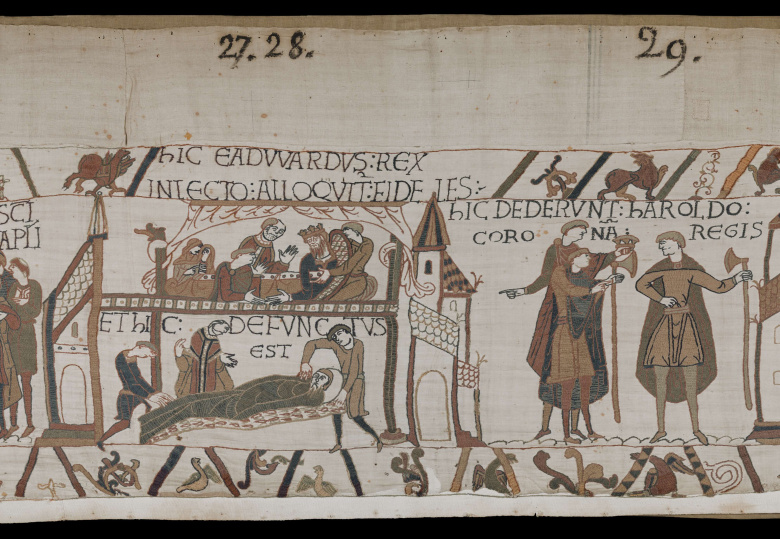 27. 28.
29.
SCI
APLI
hIC EADVVARDVS: REX
IN LECTO: ALLOQVIT: FIDELES:
ET hIC: DEFVNCTVS
EST
hIC DEDERVNT: hAROLDO:
CORONA: REGIS